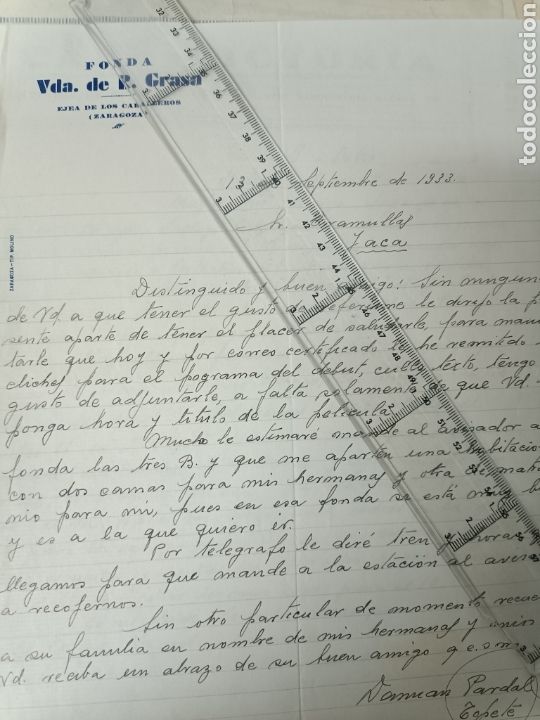 FONDA
Vda. de R. Grasa
EJEA DE LOS CABALLEROS
(ZARAGOZA)
ZARAGOZA - TIP. MOLINO
13 Septiembre de 1933.
Sr. Gramullas
Jaca
Distinguido y buen amigo: Sin ninguna
de Vd. a que tener el gusto de referirme le dirijo la p
sente aparte de tener el placer de saludarle, para mani
tarle que hoy y por correo certificado le he remitido
cliches para el pograma del debut, cullo testo, tengo
gusto de adjuntarle, a falta solamente de que Vd.
ponga hora y titulo de la pelicula.
Mucho le estimaré mande al avisador a
fonda las tres B. y que me aparten una habitacio
con dos camas para mis hermanas y otra de matri
nio para mi, pues en esa fonda se está muy b
y es a la que quiero ir.
Por telegrafo le diré tren y hora
llegamos para que mande a la estación al avisa
a recojernos.
Sin otro particular de momento recue
a su familia en nombre de mis hermanas y mio
Vd. reciba un abrazo de su buen amigo q.e.s.m.
Damian Pardal
Tepete
todocoleccion